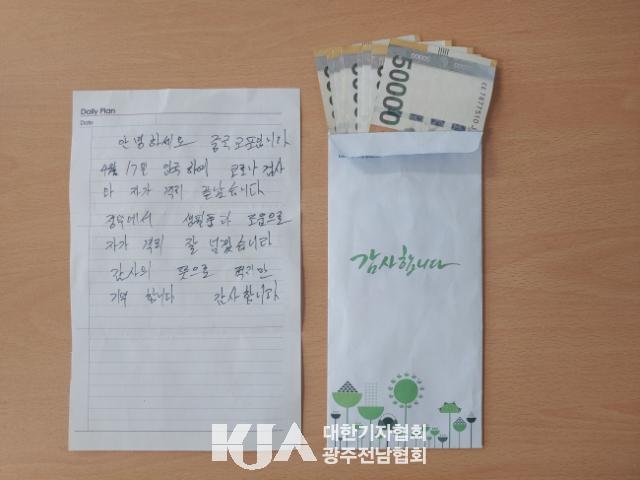 Daily Plan
Date
안녕하세요 중국 교포입니다
4월 17일 입국 하여 코로나 검사
다 자가 격리 끝났습니다
정부에서 생필품과 도움으로
자가 격리 잘 넘겼습니다
감사의 뜻으로 적지만
기부 합니다 감사합니다
50000
감사합니다
KJA 대한기자협회
광주전남협회